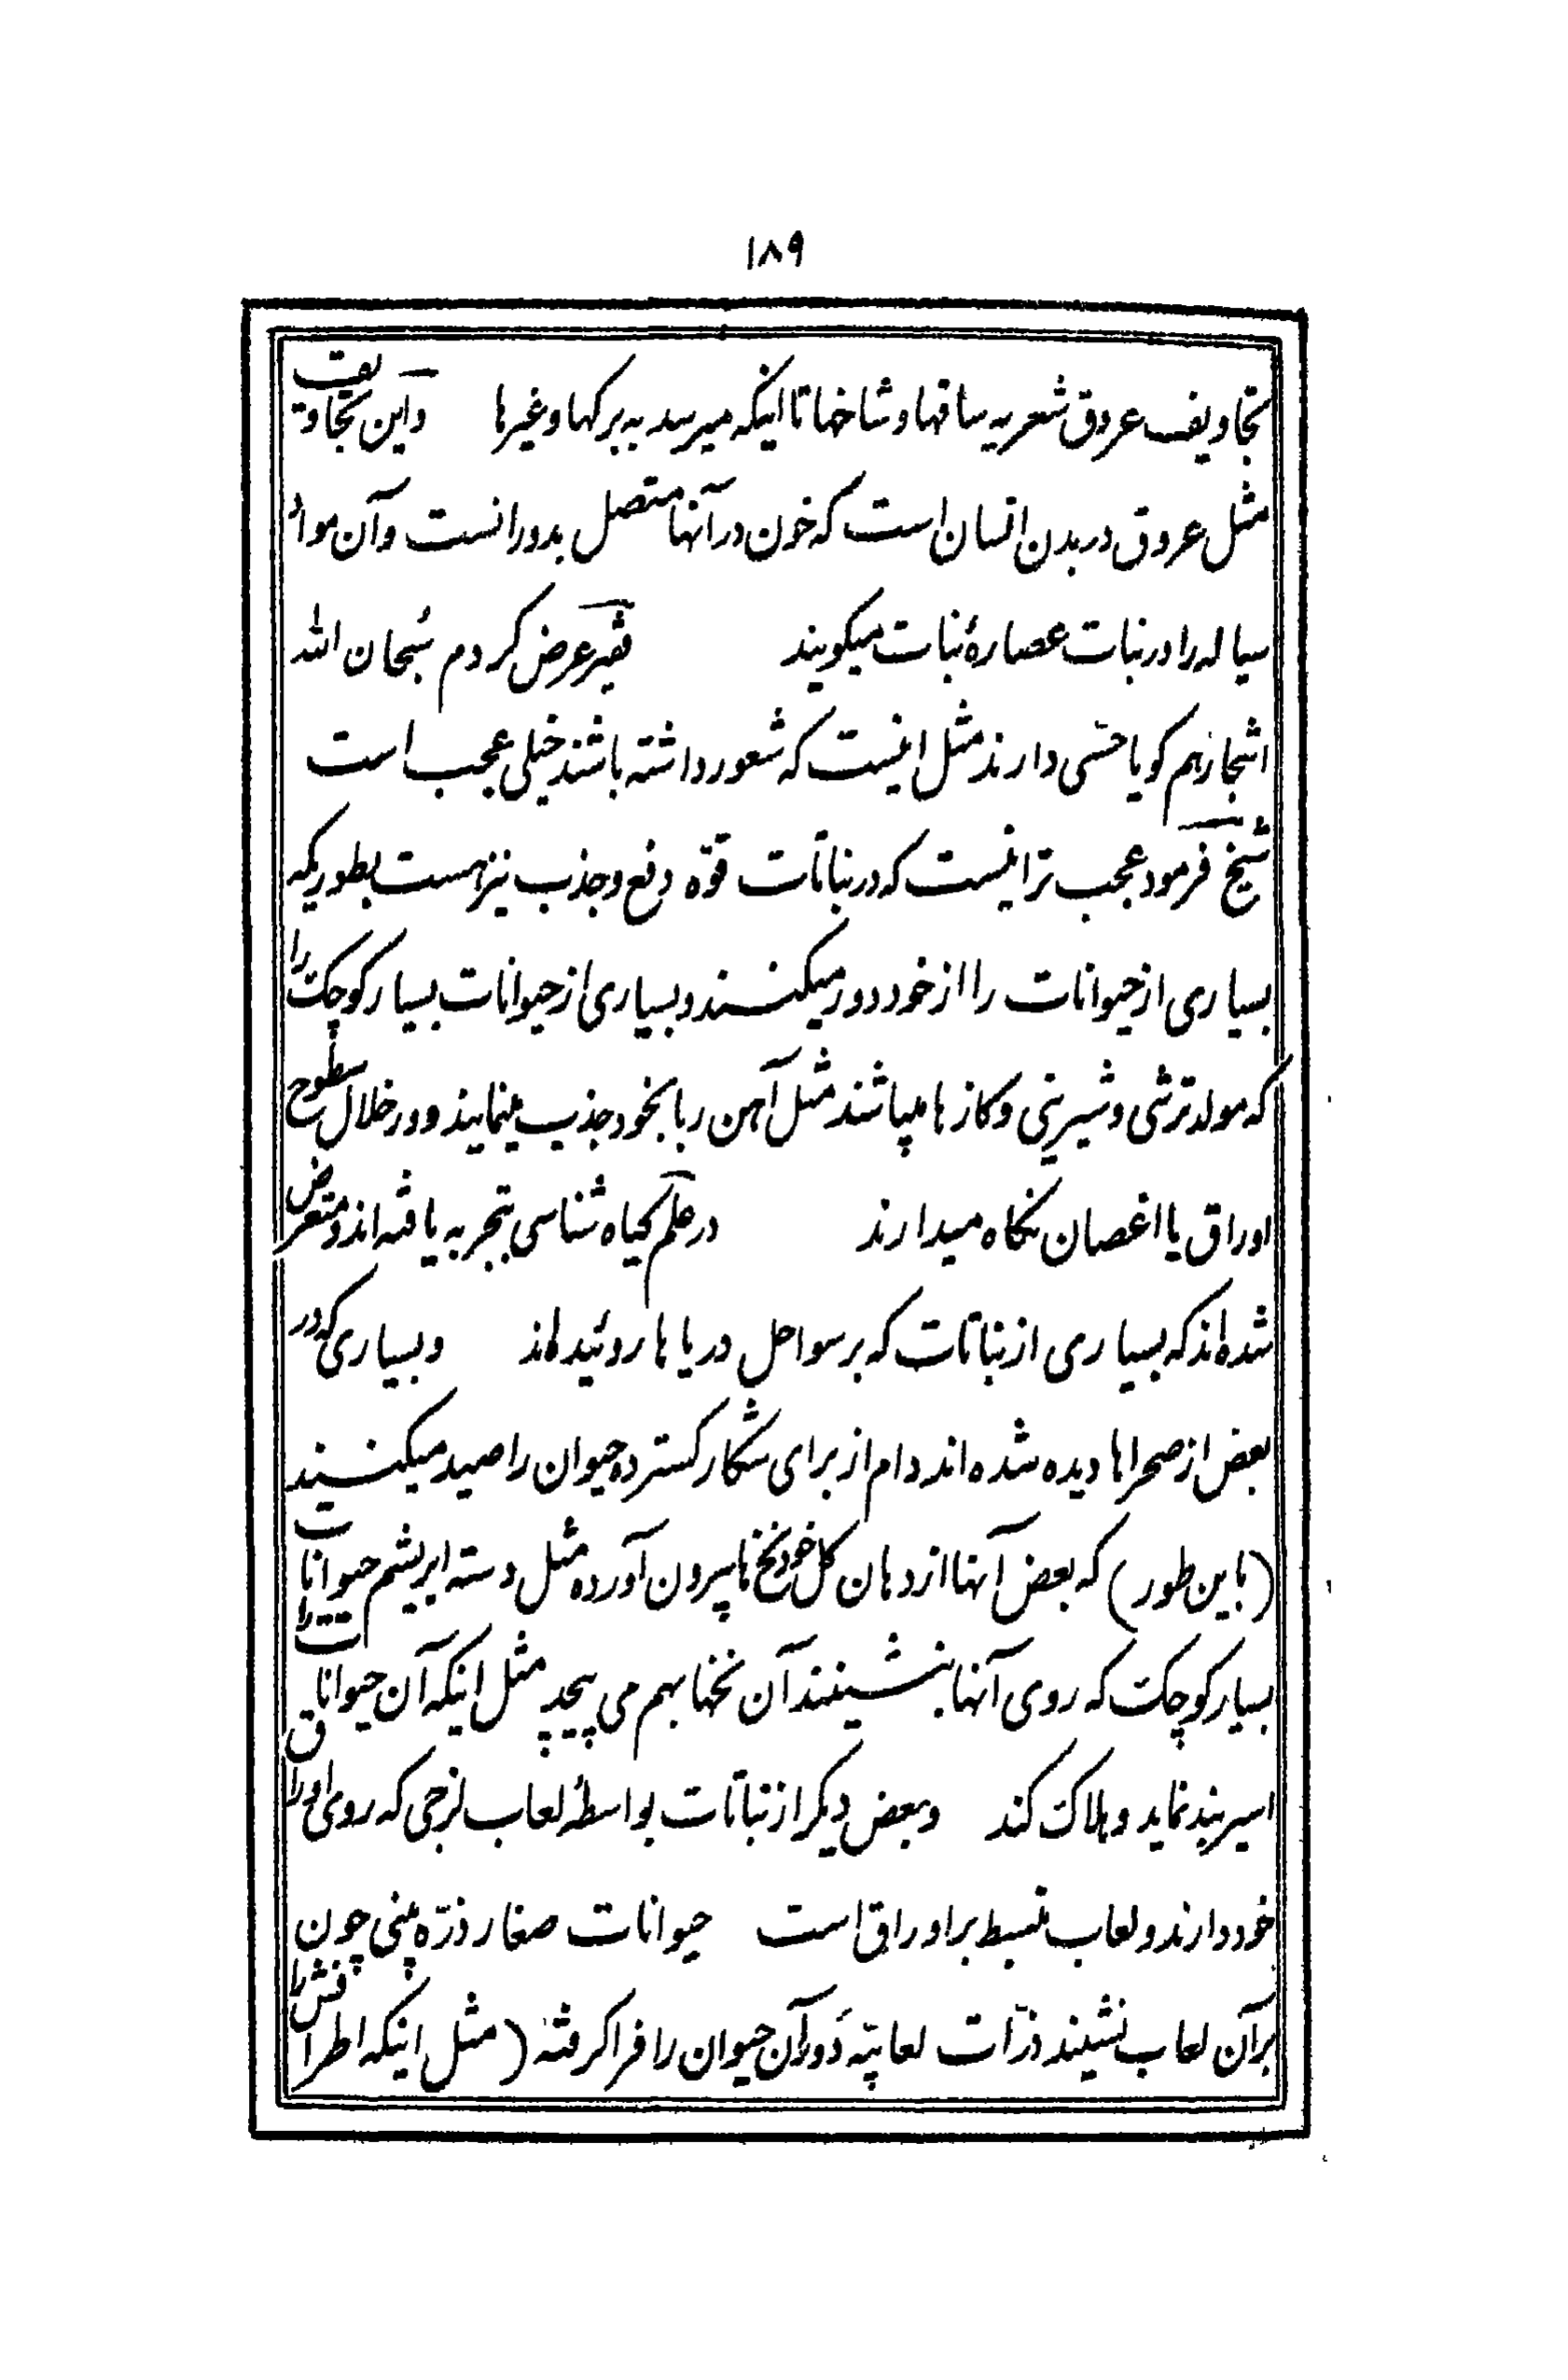 ۱۸۹
تجاویف عروق شعریه ساقها و شاخها تا اینکه میرسد به برکها و غیرها و این تجاویف
مثل عروق در بدن انسان است که خون در آنها متصل بدورانست و آن مواد
سیاله را در نبات عصارهٔ نبات میکویند فقیر عرض کردم سُبحان الله
اشجار هم کویا حسّی دارند مثل اینست که شعور داشته باشند خیلی عجب است
شیخ فرمود عجب تر اینست که در نباتات قوّه دفع و جذب نیز هست بطوریکه
بسیاری از حیوانات را از خود دور میکنند و بسیاری از حیوانات بسیار کوچک را
که مولد ترشی و شیرینی و کازها میباشند مثل آهن ربا بخود جذب مینمایند و در خلال سطوح
اوراق یا اغصان نکاه میدارند در علم کیاه شناسی تجربه یافته اند و متعرض
شده اند که بسیاری از نباتات که بر سواحل دریاها روئیده اند و بسیاری که در
بعض از صحراها دیده شده اند دام از برای شکار کسترده حیوان را صید میکنند
(باین طور) که بعض آنها از دهان کل خود نخ ها بیرون آورده مثل دسته ابریشم حیوانات
بسیار کوچک که روی آنها بنشینند آن نخها بهم می پیچد مثل اینکه آن حیوانات را
اسیر بند نماید و هلاک کند و بعض دیکر از نباتات بواسطهٔ لعاب لزجی که روی اوراق
خود دارند و لعاب منبسط بر اوراق است حیوانات صغار ذرّه بینی چون
بر آن لعاب نشینند ذرّات لعابیّه دَور آن حیوان را فرا کرفته (مثل اینکه اطرافش را